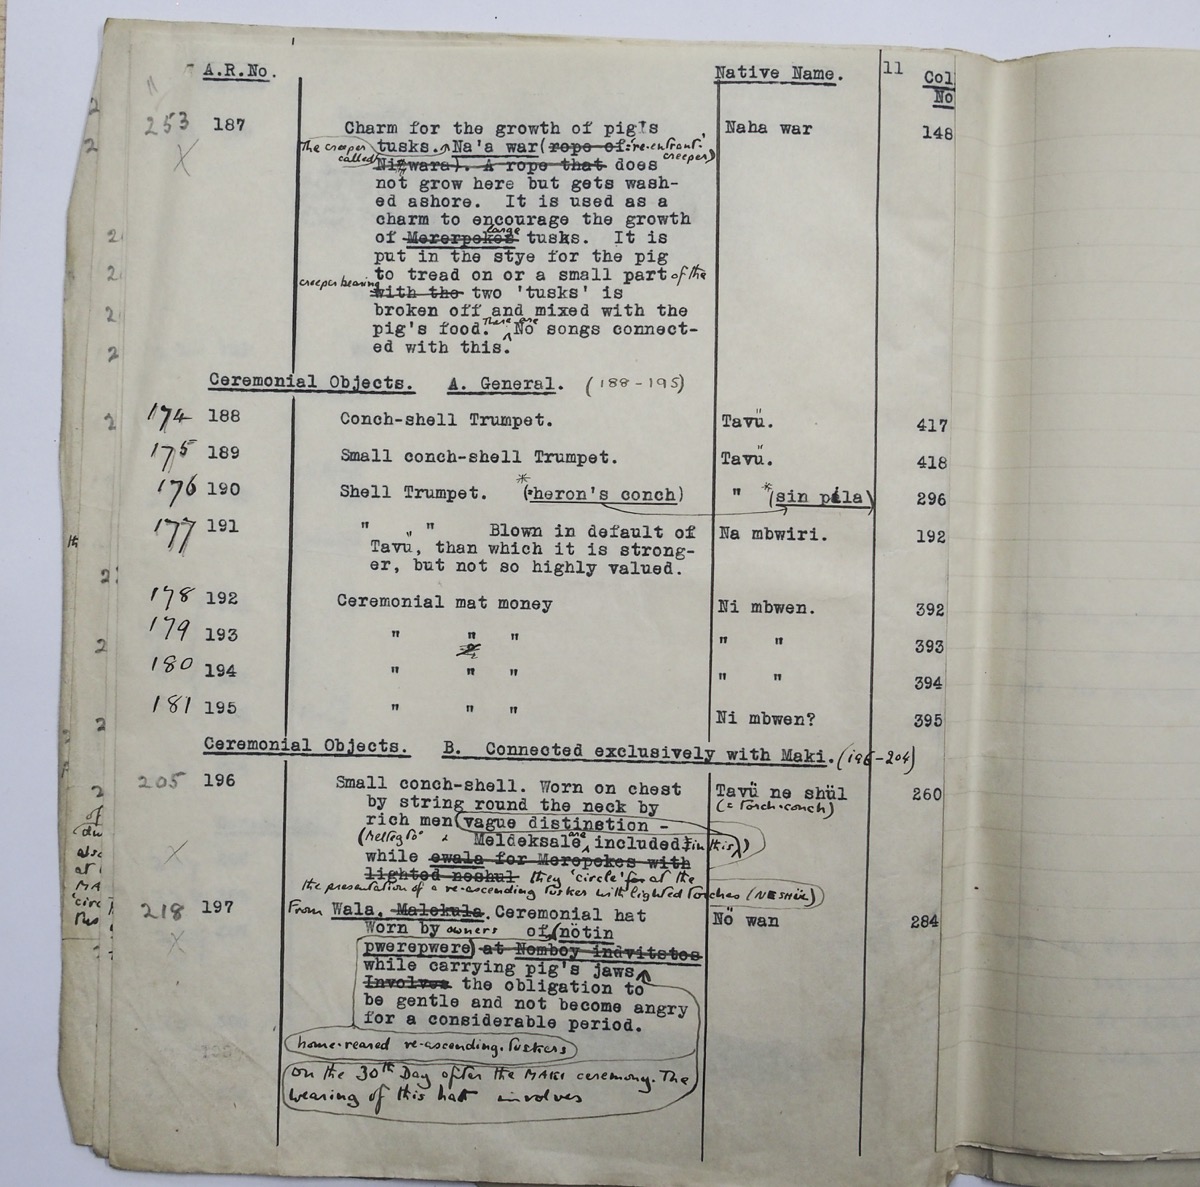 A.R.No. Native Name. 11 Col No
253 187 Charm for the growth of pig's Naha war 148
The creeper called tusks. Na'a war (rope of :re-entrant creeper)
Ni wara). A rope that does
not grow here but gets wash-
ed ashore. It is used as a
charm to encourage the growth
of Mererpokes large tusks. It is
put in the stye for the pig
to tread on or a small part of the
creeper bearing with the two 'tusks' is
broken off and mixed with the
pig's food. There are No songs connect-
ed with this.
Ceremonial Objects. A. General. (188-195)
174 188 Conch-shell Trumpet. Tavü. 417
175 189 Small conch-shell Trumpet. Tavü. 418
176 190 Shell Trumpet. *(=heron's conch) " *(sin pala) 296
177 191 " " Blown in default of Na mbwiri. 192
Tavü, than which it is strong-
er, but not so highly valued.
178 192 Ceremonial mat money Ni mbwen. 392
179 193 " " " " " 393
180 194 " " " " " 394
181 195 " " " Ni mbwen? 395
Ceremonial Objects. B. Connected exclusively with Maki. (196-204)
205 196 Small conch-shell. Worn on chest Tavü ne shül 260
by string round the neck by (= Torch-conch)
rich men (vague distinction -
Meldeksale are included in this)
while ewala for Meropokes with
lighted neshul they 'circle' for at the
the presentation of a re-ascending tusker with lighted torches (NESHÜL)
218 197 From Wala, Malekula. Ceremonial hat Nö wan 284
Worn by owners of (nötin
pwerepwere) at Nomboy indvitstos
while carrying pig's jaws
Involves the obligation to
be gentle and not become angry
for a considerable period.
home-reared re-ascending tuskers
on the 30th Day after the MAKI ceremony. The
wearing of this hat involves